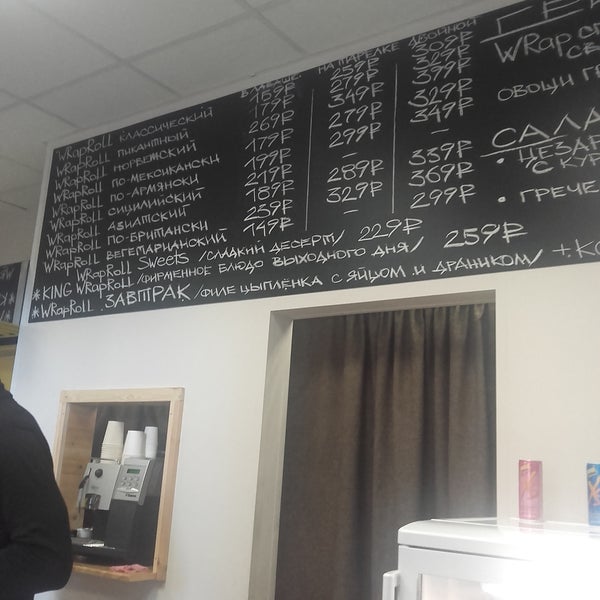 В ЛАВАШЕ НА ТАРЕЛКЕ ДВОЙНОЙ
WRapRoll КЛАССИЧЕСКИЙ 159₽ 259₽ 309₽
WRapRoll ПИКАНТНЫЙ 179₽ 279₽ 329₽
WRapRoll НОРВЕЖСКИЙ 269₽ 349₽ 399₽
WRapRoll ПО-МЕКСИКАНСКИ 179₽ 279₽ 329₽
WRapRoll ПО-АРМЯНСКИ 199₽ 299₽ 349₽
WRapRoll СИЦИЛИЙСКИЙ 219₽ – –
WRapRoll АЗИАТСКИЙ 189₽ 289₽ 339₽
WRapRoll ПО-БРИТАНСКИ 259₽ 329₽ 369₽
WRapRoll ВЕГЕТАРИАНСКИЙ 149₽ – 299₽
WRapRoll Sweets /СЛАДКИЙ ДЕСЕРТ/ 229₽
*KING WRapRoll /ФИРМЕННОЕ БЛЮДО ВЫХОДНОГО ДНЯ/ 259₽
*WRapRoll ЗАВТРАК /ФИЛЕ ЦЫПЛЁНКА С ЯЙЦОМ И ДРАНИКОМ/
WRap
ОВОЩИ
• ЦЕЗАР
С КУР
• ГРЕЧЕ